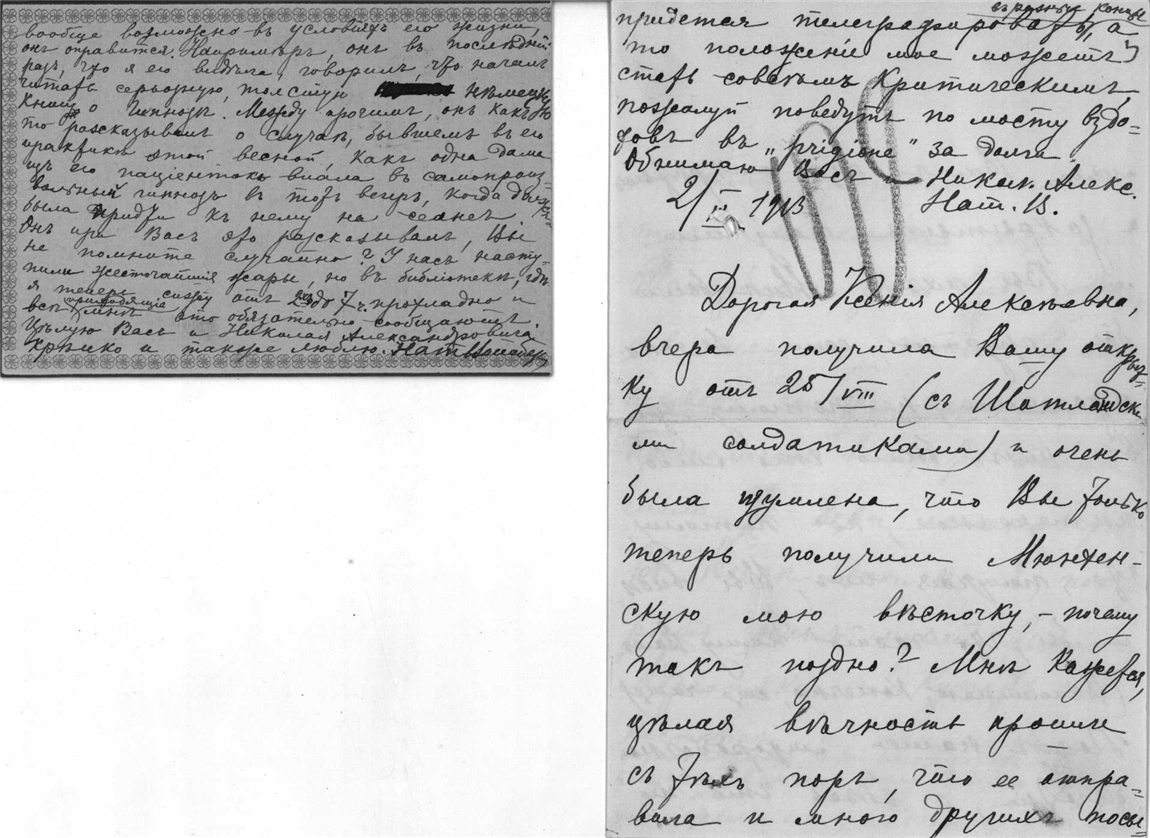 вообще возможно въ условіяхъ его жизни,
онъ оправится. Напримѣръ, онъ въ последній
разъ, что я его видѣла, говорилъ, что началъ
читать серьозную, толстую нѣмецкую
книгу о гипнозѣ. Между прочимъ, онъ какъ
то разсказывалъ о случаѣ, бывшемъ въ его
практикѣ этой весной, какъ одна дама
изъ его пацiентокъ впала въ самопроиз
вольный гипнозъ въ тотъ вечеръ, когда должна
была придти къ нему на сеансъ.
Онъ при Васъ это разсказывалъ, Вы
не помните случайно? У насъ насту-
пили жесточайшія жары, но въ библіотекѣ, гдѣ
я теперь сижу отъ 2 до 7 ч. прохладно и
всѣ приходящіе мнѣ это обязательно сообщаютъ.
Цѣлую Васъ и Николая Александровича
крѣпко и также люблю. Нат.
въ разные концы
придется телеграфировать, а
то положеніе мое можетъ
стать совсѣмъ критическимъ,
пожалуй поведутъ по мосту вздо-
ховъ въ „prigione“ за долги.
Обнимаю Васъ и Никол. Алекс.
2/IX 1913 Нат. В.
Дорогая Ксенія Алексѣевна,
вчера получила Вашу открыт-
ку отъ 25/VIII (съ Шотландски
ми солдатиками) и очень
была изумлена, что Вы только
теперь получили Мюнхен-
скую мою вѣсточку, – почему
такъ поздно? Мнѣ кажется,
цѣлая вѣчность прошла
съ тѣхъ поръ, что ее отпра-
вила и много другихъ посы